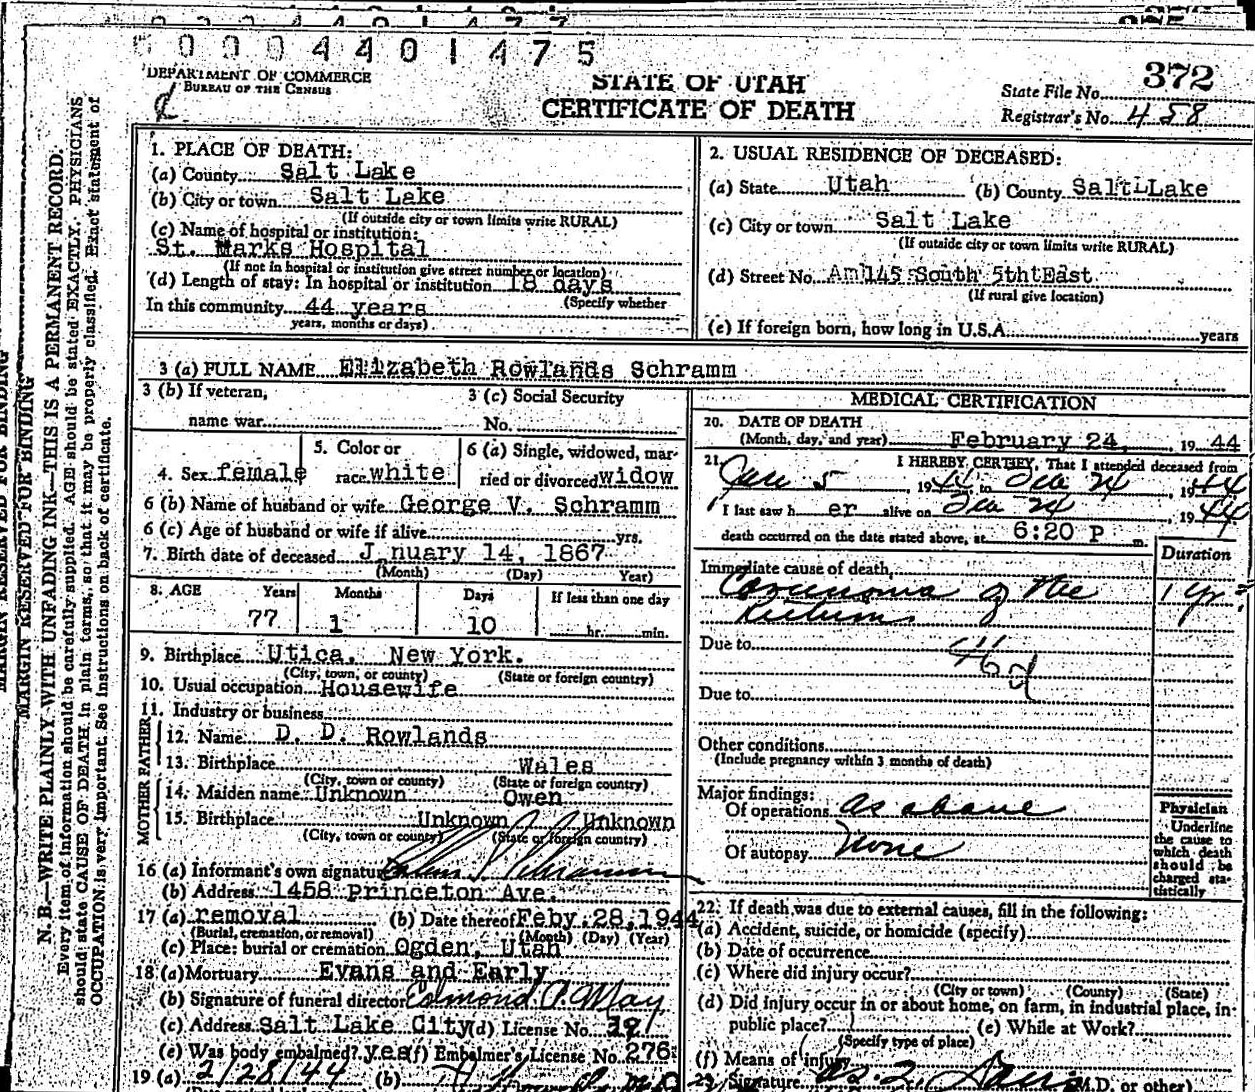 0 0 0 4 4 0 1 4 7 5
DEPARTMENT OF COMMERCE
BUREAU OF THE CENSUS
STATE OF UTAH
CERTIFICATE OF DEATH
State File No. 372
Registrar's No. 458
MARGIN RESERVED FOR BINDING
N. B.—WRITE PLAINLY WITH UNFADING INK—THIS IS A PERMANENT RECORD.
Every item of information should be carefully supplied. AGE should be stated EXACTLY. PHYSICIANS
should state CAUSE OF DEATH in plain terms, so that it may be properly classified. Exact statement of
OCCUPATION is very important. See instructions on back of certificate.
1. PLACE OF DEATH:
(a) County Salt Lake
(b) City or town Salt Lake
(If outside city or town limits write RURAL)
(c) Name of hospital or institution:
St. Marks Hospital
(If not in hospital or institution give street number or location)
(d) Length of stay: In hospital or institution 18 days
(Specify whether
In this community 44 years
years, months or days)
2. USUAL RESIDENCE OF DECEASED:
(a) State Utah (b) County Salt Lake
(c) City or town Salt Lake
(If outside city or town limits write RURAL)
(d) Street No. 145 South 5th East
(If rural give location)
(e) If foreign born, how long in U.S.A. years
3 (a) FULL NAME Elizabeth Rowlands Schramm
3 (b) If veteran,
name war
3 (c) Social Security
No.
4. Sex female
5. Color or
race white
6 (a) Single, widowed, mar-
ried or divorced widow
6 (b) Name of husband or wife George V. Schramm
6 (c) Age of husband or wife if alive yrs.
7. Birth date of deceased J nuary 14, 1867
(Month) (Day) Year)
8. AGE Years Months Days If less than one day
77 1 10 hr. min.
9. Birthplace Utica, New York.
(City, town, or county) (State or foreign country)
10. Usual occupation Housewife
11. Industry or business
FATHER
12. Name D. D. Rowlands
13. Birthplace Wales
(City, town or county) (State or foreign country)
MOTHER
14. Maiden name Unknown Owen
15. Birthplace Unknown Unknown
(City, town or county) (State or foreign country)
16 (a) Informant's own signature Schramm
(b) Address 1458 Princeton Ave.
17 (a) removal (b) Date thereof Feby. 28, 1944
(Burial, cremation, or removal) (Month) (Day) (Year)
(c) Place: burial or cremation Ogden, Utah
18 (a) Mortuary Evans and Early
(b) Signature of funeral director Edmond A. May
(c) Address Salt Lake City (d) License No. 391
(e) Was body embalmed? yes (f) Embalmer's License No. 276
19 (a) 2/28/44 (b)
MEDICAL CERTIFICATION
20. DATE OF DEATH
(Month, day, and year) February 24, 19 44
21. I HEREBY CERTIFY, That I attended deceased from
Jan 5, 1944 to Feb 24, 1944
I last saw h er alive on Feb 24, 1944
death occurred on the date stated above, at 6:20 P m.
Duration
Immediate cause of death,
Carcinoma of the 1 yr.?
Rectum
Due to 46 d
Due to
Other conditions
(Include pregnancy within 3 months of death)
Major findings:
Of operations as above
Of autopsy None
Physician
Underline
the cause to
which death
should be
charged sta-
tistically
22. If death was due to external causes, fill in the following:
(a) Accident, suicide, or homicide (specify)
(b) Date of occurrence
(c) Where did injury occur?
(City or town) (County) (State)
(d) Did injury occur in or about home, on farm, in industrial place, in
public place? (e) While at Work?
(Specify type of place)
(f) Means of injury
23. Signature (M.D. or other)